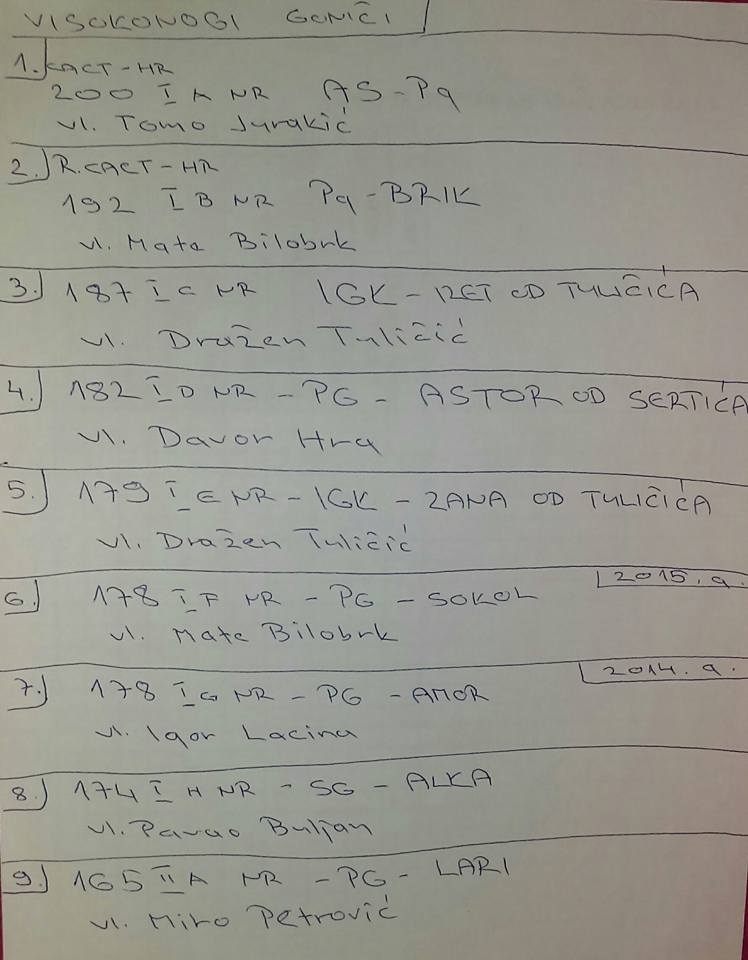 VISOKONOGI GONIČI
1. CACT-HR
200 I A NR AS-Pg
vl. Tomo Jurakić
2. R.CACT-HR
192 I B NR Pg-BRIK
vl. Mate Bilobrk
3. 187 I C NR IGK-IZET OD TULIČIĆA
vl. Dražen Tuličić
4. 182 I D NR - PG - ASTOR OD SERTIĆA
vl. Davor Hra
5. 179 I E NR - IGK - ZANA OD TULIČIĆA
vl. Dražen Tuličić
6. 178 I F NR - PG - SOKOL 2015.g.
vl. Mate Bilobrk
7. 178 I G NR - PG - AMOR 2014.g.
vl. Igor Lacina
8. 174 I H NR - SG - ALKA
vl. Pavao Buljan
9. 165 II A NR - PG - LARI
vl. Miro Petrović